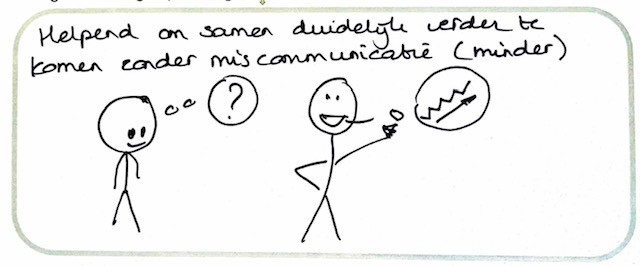 Helpend om samen duidelijk verder te
komen zonder miscommunicatie (minder)
?